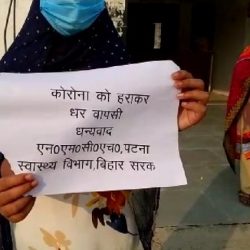 कोरोना को हराकर
धर वापसी
धन्यवाद
एन0एम0सी0एच0,पटना
स्वास्थ्य विभाग,बिहार सरक